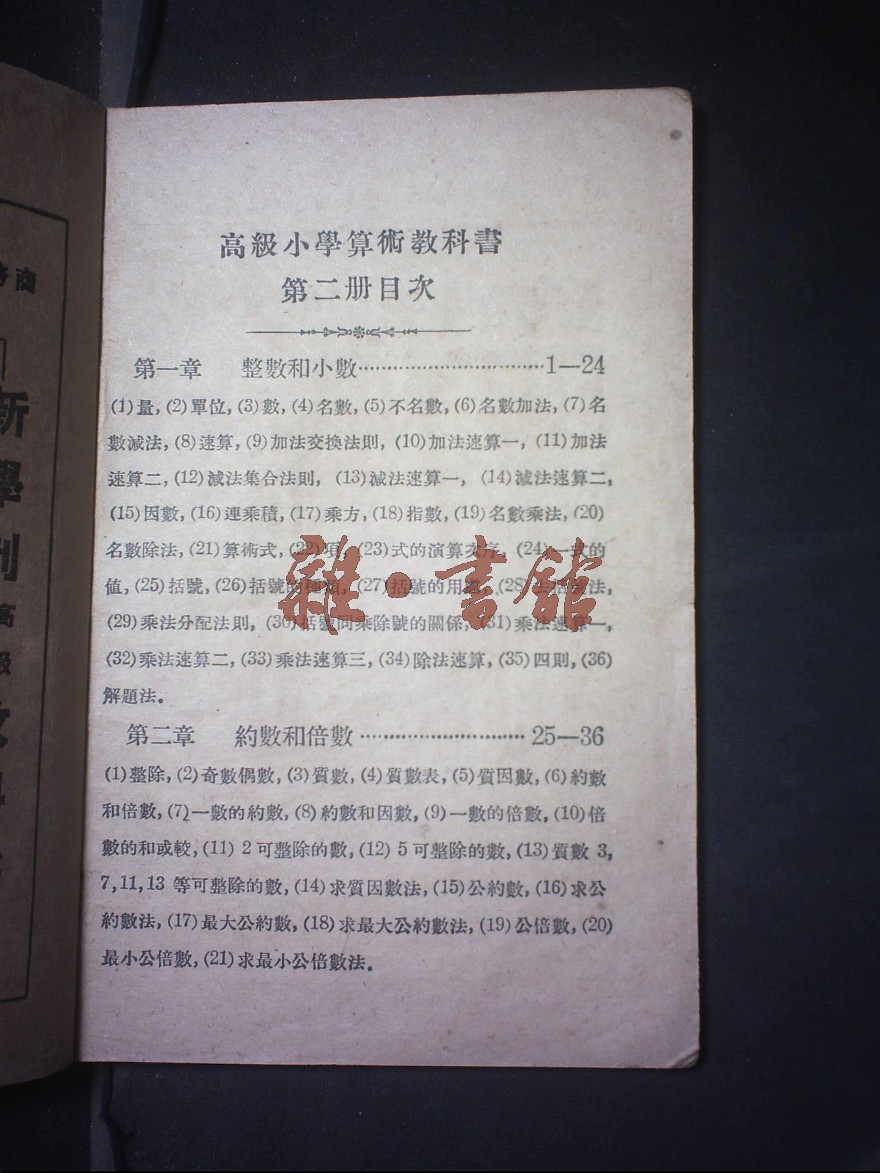 高級小學算術教科書
第二册目次
第一章 整數和小數……………………………1—24
(1)量, (2)單位, (3)數, (4)名數, (5)不名數, (6)名數加法, (7)名
數減法, (8)速算, (9)加法交換法則, (10)加法速算一, (11)加法
速算二, (12)減法集合法則, (13)減法速算一, (14)減法速算二,
(15)因數, (16)連乘積, (17)乘方, (18)指數, (19)名數乘法, (20)
名數除法, (21)算術式, (22)項, (23)式的演算次序, (24)一式的
值, (25)括號, (26)括號的種類, (27)括號的用處, (28)去括號法,
(29)乘法分配法則, (30)括號同乘除號的關係, (31)乘法速算一,
(32)乘法速算二, (33)乘法速算三, (34)除法速算, (35)四則, (36)
解題法。
第二章 約數和倍數………………………25—36
(1)整除, (2)奇數偶數, (3)質數, (4)質數表, (5)質因數, (6)約數
和倍數, (7)一數的約數, (8)約數和因數, (9)一數的倍數, (10)倍
數的和或較, (11) 2 可整除的數, (12) 5 可整除的數, (13)質數 3,
7, 11, 13 等可整除的數, (14)求質因數法, (15)公約數, (16)求公
約數法, (17)最大公約數, (18)求最大公約數法, (19)公倍數, (20)
最小公倍數, (21)求最小公倍數法。
雜·書館
商務
新學制
高級